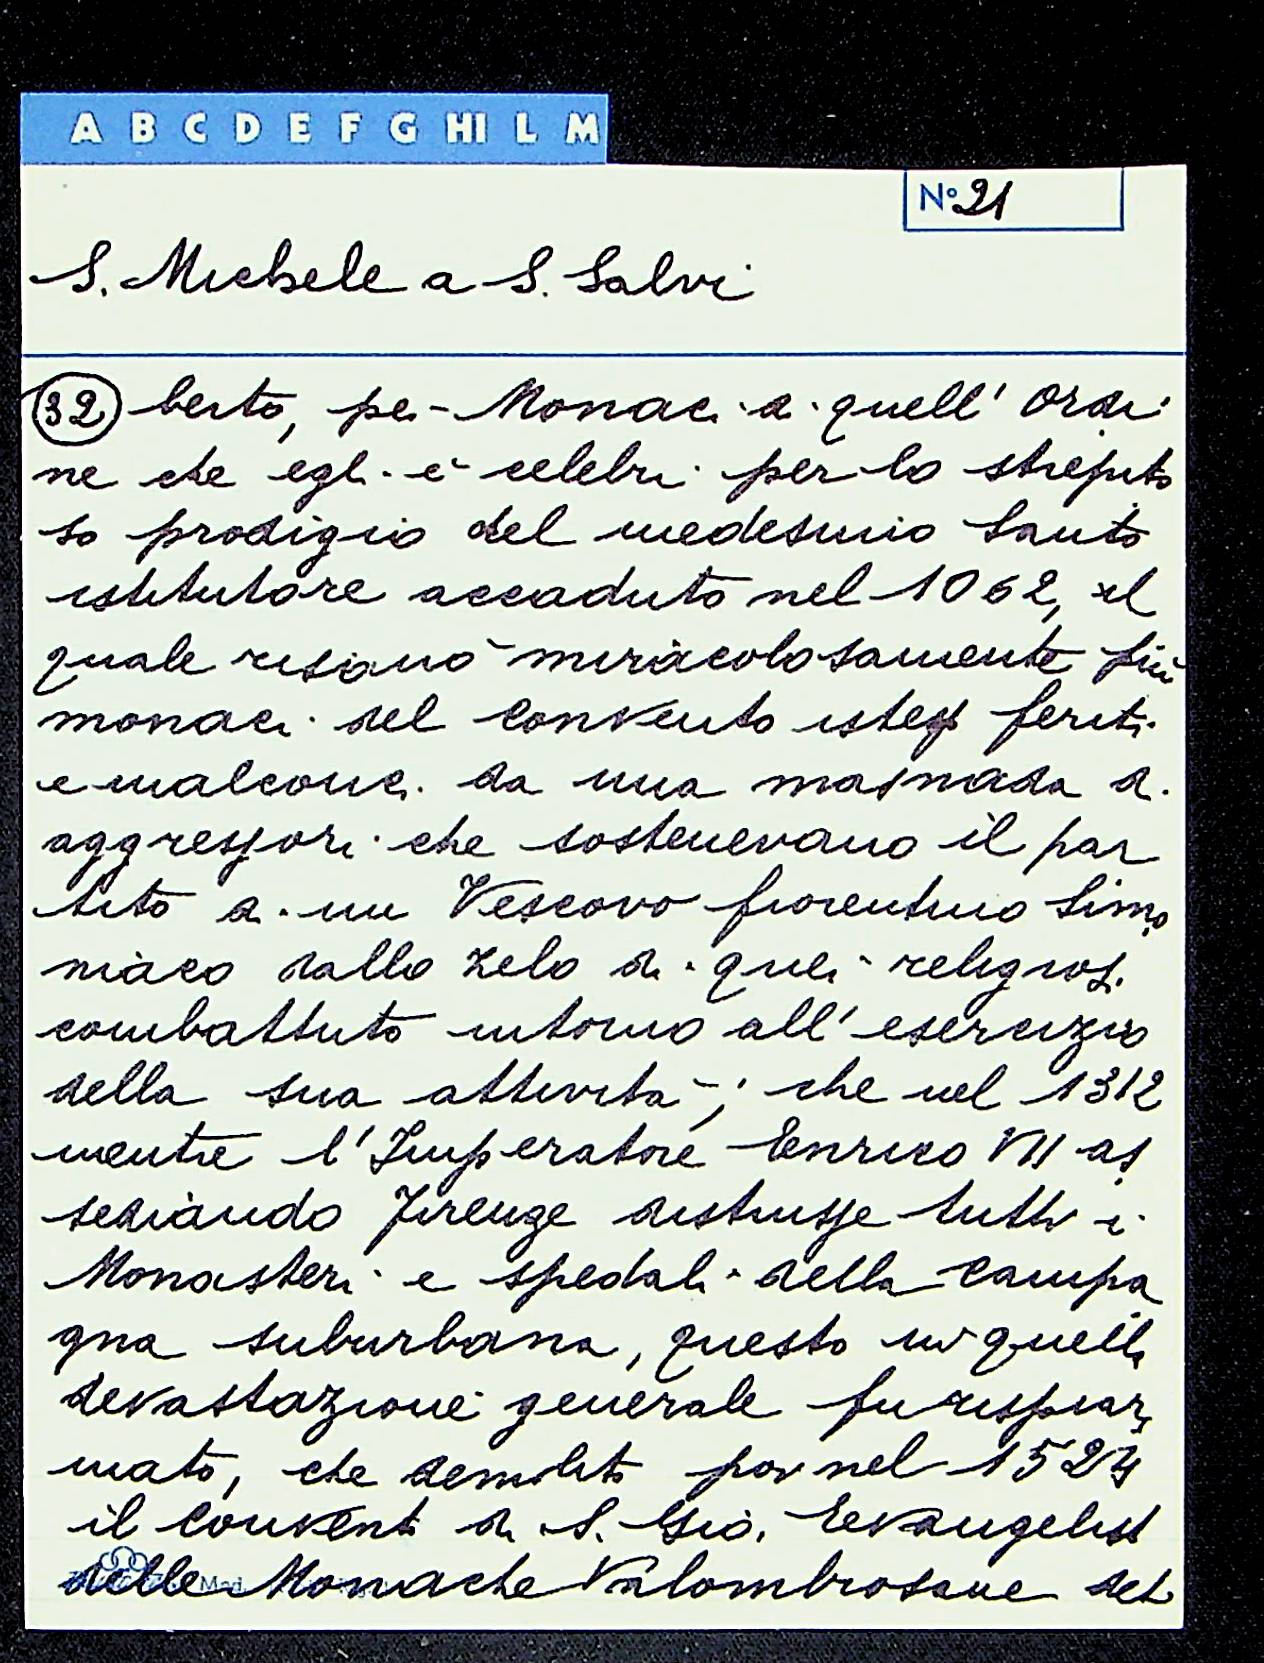 A B C D E F G HI L M
N° 21
S. Michele a S. Salvi
32 berto, pei Monaci di quell' Ordi
ne che egli è celebri per lo strepito
so prodigio del medesimo Santo
istitutore accaduto nel 1062, il
quale risanò miracolosamente più
monaci del Convento istess feriti
e malconci da una masnada di
aggressori che sostenevano il par
tito di un Vescovo fiorentino Simo
niaco dallo zelo di quei religiosi
combattuto intorno all' esercizio
della sua attività; che nel 1312
mentre l'Imperatore Enrico VII as
sediando Firenze distrusse tutti i
Monasteri e spedali della Campa
gna suburbana, questo in quella
devastazione generale fu rispiar
mato, che demolito poi nel 1527
il Convento di S. Giò. Evangelist
delle Monache Valombrosane del